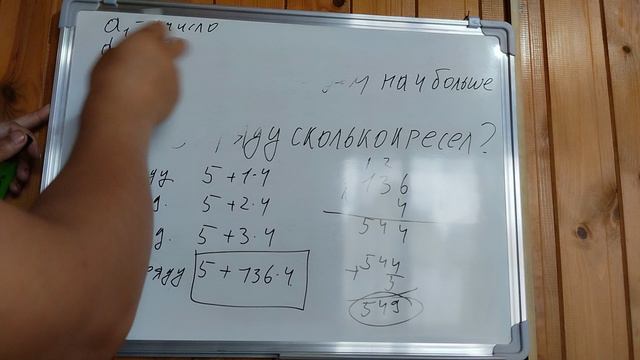 a₁ - число
наибольше
ряду сколько кресел?
5 + 1·4
5 + 2·4
5 + 3·4
5 + 136·4
1 2
136
4
544
+ 544
5
549